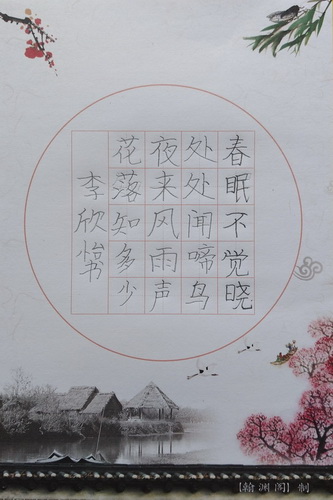 春眠不觉晓
处处闻啼鸟
夜来风雨声
花落知多少
李欣怡书
【翰渊阁】制